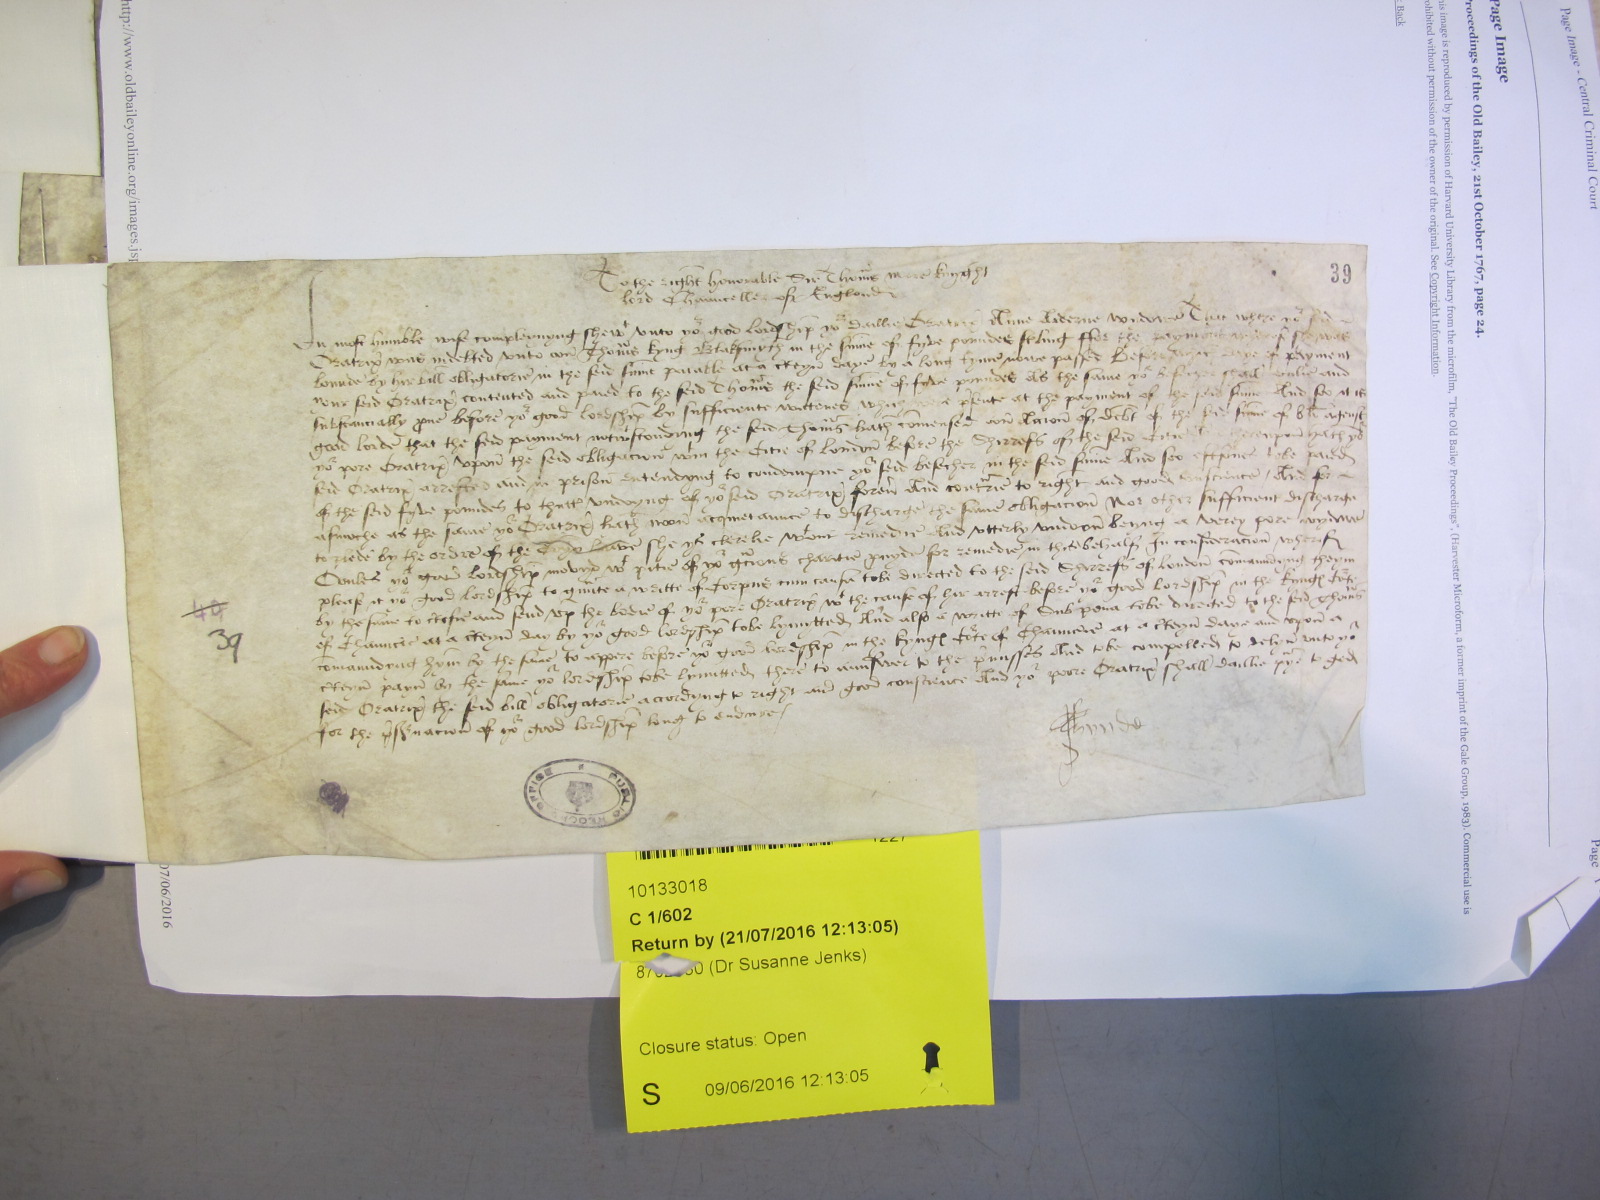 Page Image - Central Criminal Court
Page
Page Image
Proceedings of the Old Bailey, 21st October 1767, page 24.
This image is reproduced by permission of Harvard University Library from the microfilm, "The Old Bailey Proceedings" (Harvester Microform, a former imprint of the Gale Group, 1983). Commercial use is
prohibited without permission of the owner of the original. See Copyright Information.
Back
http://www.oldbaileyonline.org/images.jsp
07/06/2016
39
To the right honorable Sir Thomas more knyght
lord Chaunceller of Englond
In most humble wise compleynyng shewith vnto yor good lordship yor daillie Oratrix Anne wydowe That where yor seid
Oratrix was indetted vnto oon Thomas kyng Blaksmyth in the summe of fyve poundes sterling ffor the payment wherof she was
bounde by hir bill obligatorie in the seid summe paiable at a certeyn daye by a long tyme nowe passed Before whiche daye of payment
your seid Oratrix contented and paied to the seid Thomas the seid summe of fyve poundes As the same yor besecher shall and
substancially prove before yor good lordship by sufficiente wittenes which were present at the payment of the seid summe And soo it is
good lorde that the seid payment notwithstonding the seid Thomas hath comensed oon Accion of Debt of the seid summe of
yor pore Oratrix vpon the seid obligacion within the Citie of London before the Shireffs of the seid Citie And therevpon hath yor
seid Oratrix arrested and in prison entendyng to condempne yor seid besecher in the seid summe And soo eftsones to be paied
of the seid fyve poundes to thutter vndoyng of yor seid Oratrix for ever And contrarie to right and good conscience And for
asmoche as the same yor Oratrix hath noon acquietaunce to discharge the same obligacion Nor other sufficient discharge
to plede by the ordre of the lawe she ys clerelie without remedie And vtterly vndoon beyng a verey pore wydowe
Onles yor good lordship moevyd with pitie of yor gracious charitie provyde for remedie in this behalf In consideracion wherof
please it yor good lordship to graunte a writte of Corpus cum causa to be directed to the seid Shireffs of London comaundyng theym
by the same to certifie and send vp the bodie of yor pore Oratrix with the cause of hir arrest before yor good lordship in the kynges Courte
of Chauncerie at a certeyn day by yor good lordship to be lymytted And also a writte of Sub pena to be directed to the seid Thomas
comaundyng hym by the same to appere before yor good lordship in the kynges Courte of Chauncerie at a certeyn daye and vpon a
certeyn payn by the same yor lordship to be lymytted there to answer to the premisses And to be compelled to delyver vnto yor
seid Oratrix the seid bill obligatorie accordyng to right and good conscience And yor poore Oratrix shall daillie pray to god
for the preservacion of yor good lordship long to endure
Hynde
39
PUBLIC RECORD OFFICE
1227
10133018
C 1/602
Return by (21/07/2016 12:13:05)
(Dr Susanne Jenks)
Closure status: Open
S 09/06/2016 12:13:05